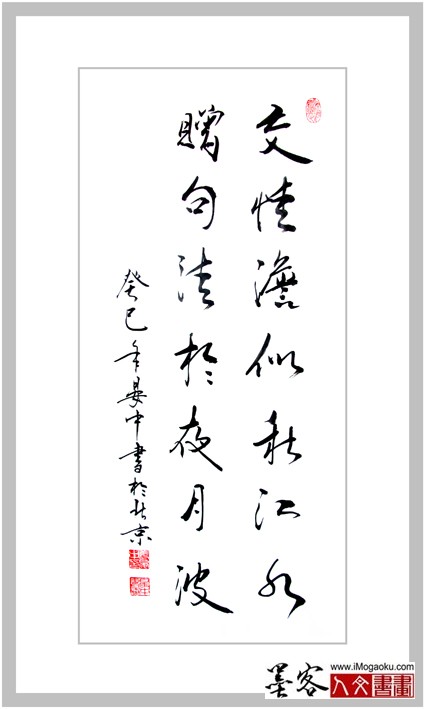 交情澹似秋江水
贈句清於夜月波
癸巳年晏中書於北京
墨客
www.iMogaoku.com
人文書畫